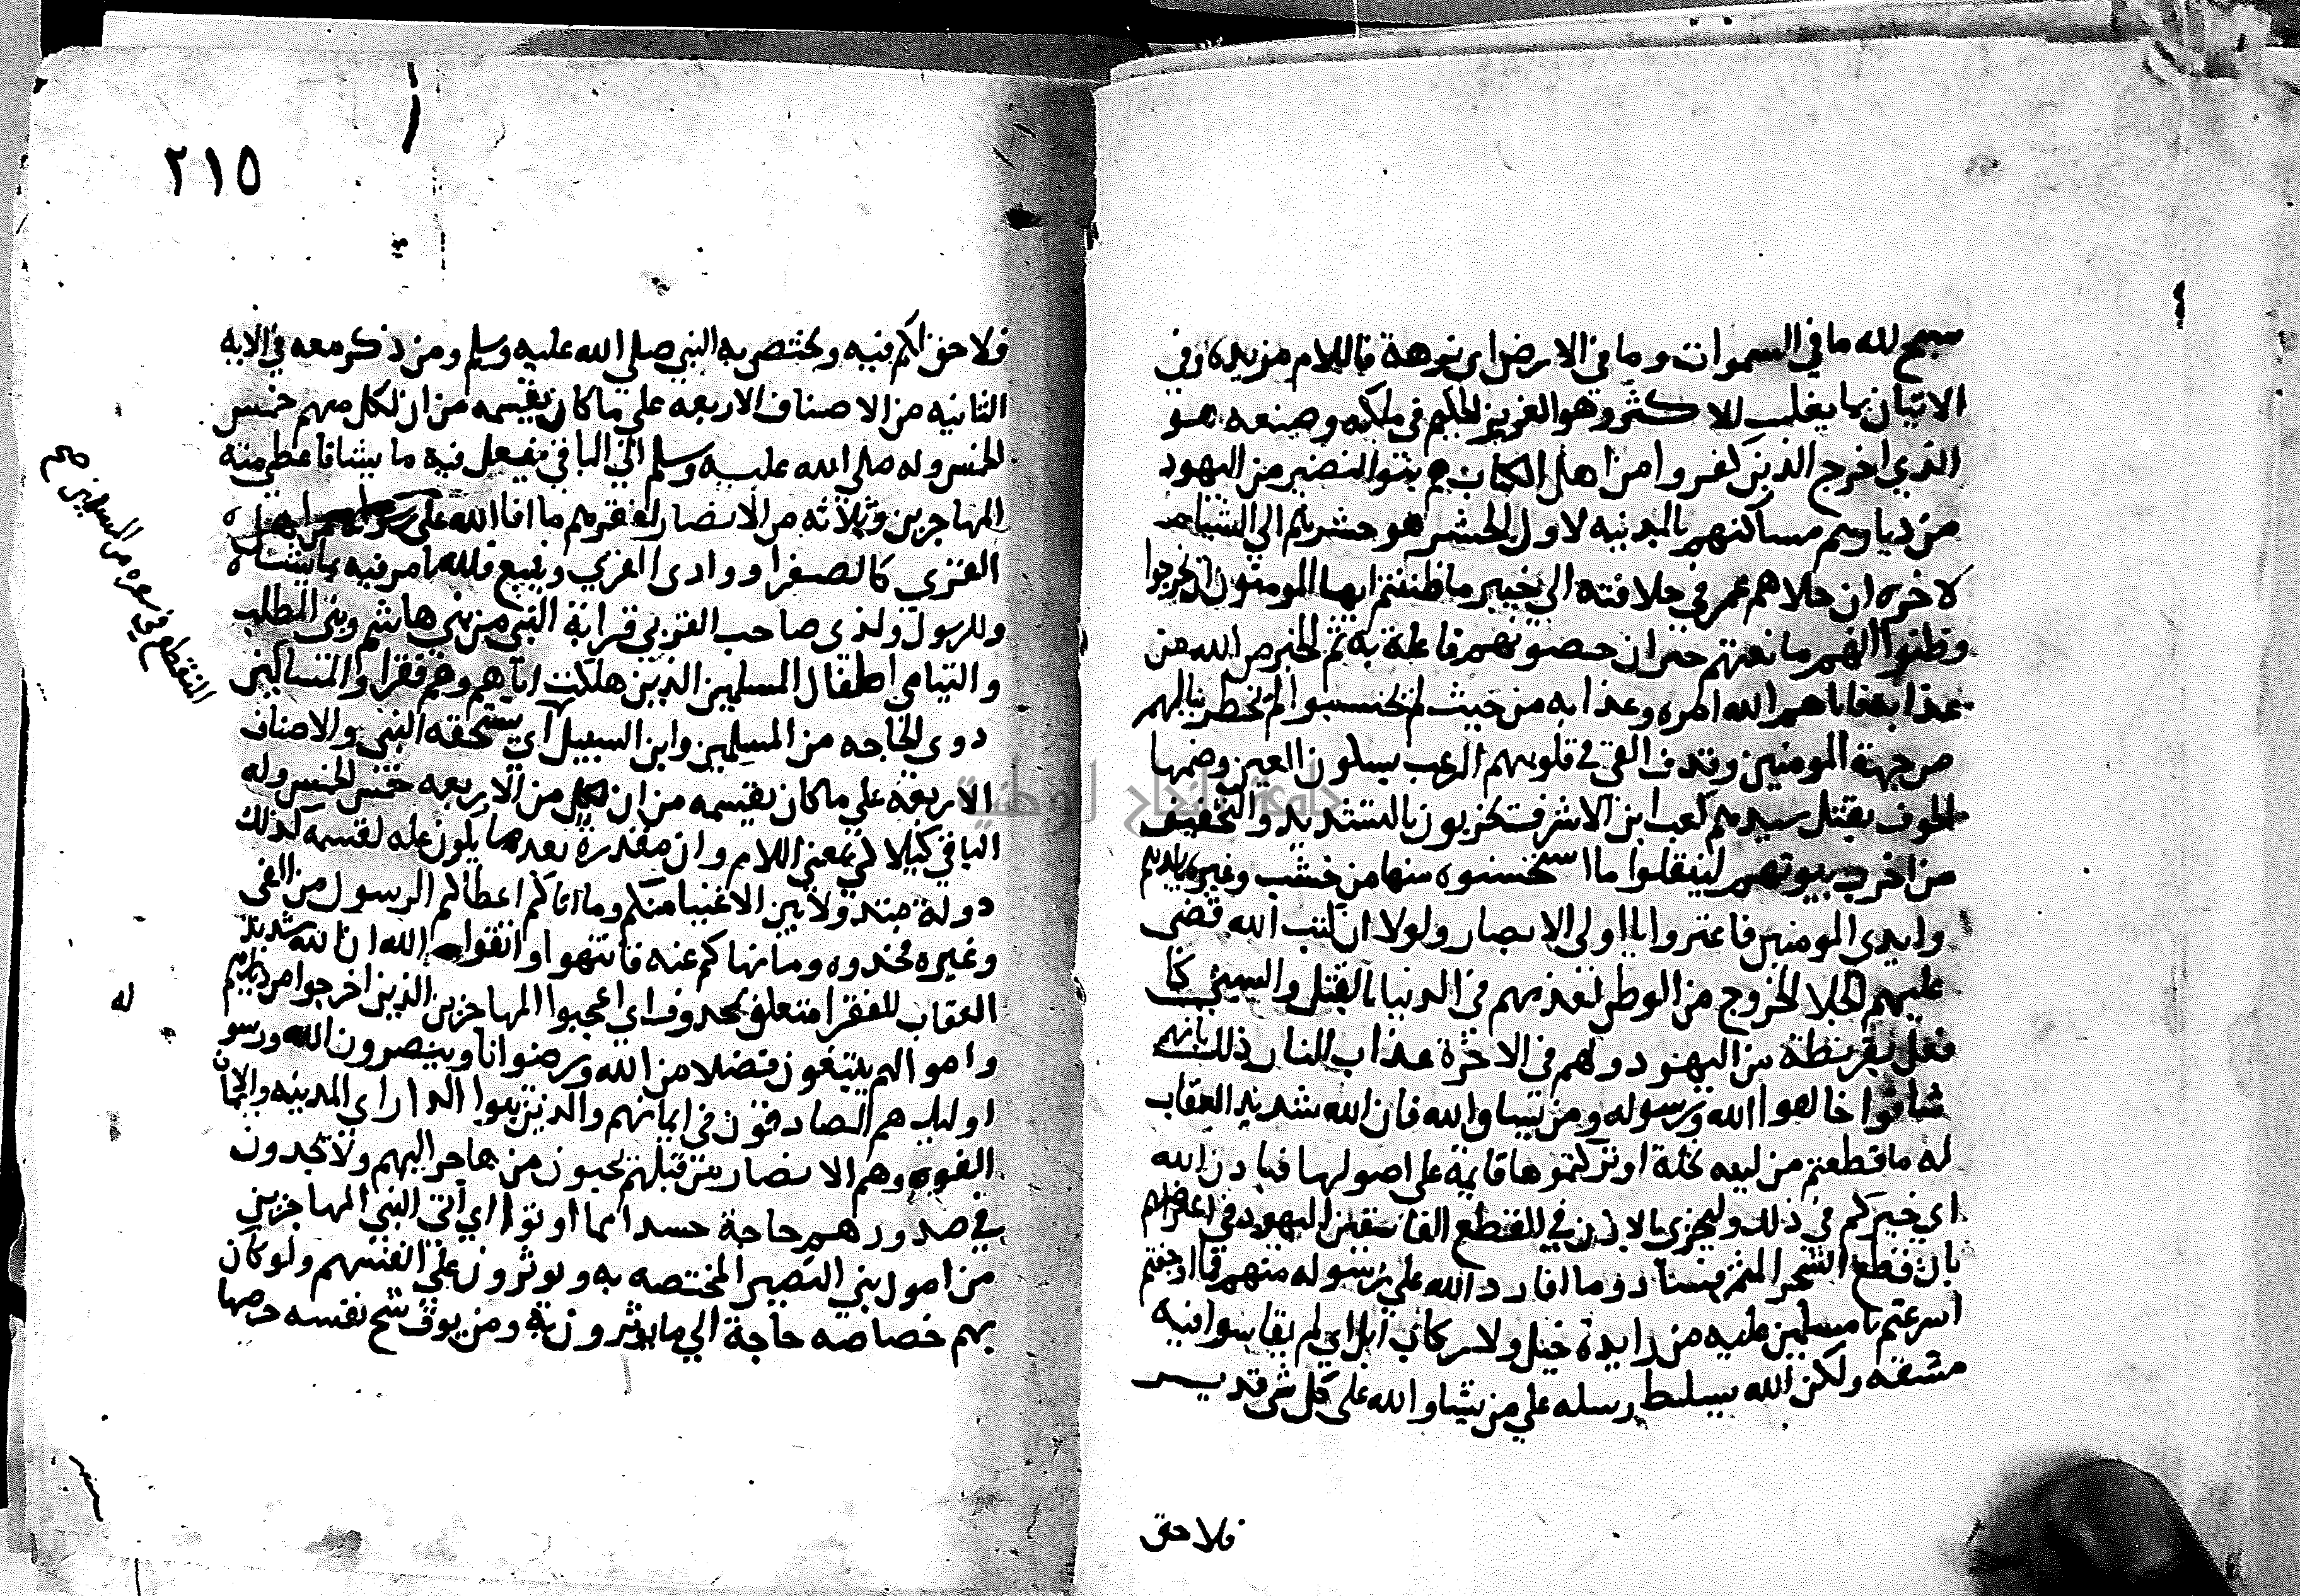 سبح لله ما في السموات وما في الارض اي نزهه فاللام مزيده وفي
الاتيان بما يغلب للاكثر وهو العزيز الحكيم في ملكه وصنعه هو
الذي اخرج الذين كفروا من اهل الكتاب هم بنوا النضير من اليهود
من ديارهم مساكنهم بالمدينه لاول الحشر هو حشرهم الي الشام
لاخره ان جلاهم عمر في خلافته الي خيبر ما ظننتم ايها المومنون ان يخرجوا
وظنوا انهم ما نعتهم خبر ان حصونهم فاعله به تم الخبر من الله من
عذابه فاتاهم الله امره وعذابه من حيث لم يحتسبوا لم يخطر ببالهم
من جهة المومنين وقذف القي في قلوبهم الرعب بسكون العين وضمها
الخوف بقتل سيدهم كعب ابن الاشرف يخربون بالتشديد والتخفيف
من اخرب بيوتهم لينقلوا ما استحسنوه منها من خشب وغيره بايديهم
وايدي المومنين فاعتبروا يا اولي الابصار ولولا ان كتب الله قضي
عليهم الجلا الخروج من الوطن لعذبهم في الدنيا بالقتل والسبي كما
فعل بقريظة من اليهود ولهم في الاخرة عذاب النار ذلك بانهم
شاقوا خالفوا الله ورسوله ومن يشاق الله فان الله شديد العقاب
له ما قطعتم من لينه نخلة او تركتموها قايمة علي اصولها فباذن الله
اي خيركم في ذلك وليخزي بالاذن في القطع الفاسقين اليهود في اعتراضهم
بان قطع الشجر المثمر فساد وما افا رد الله علي رسوله منهم فما اوجفتم
اسرعتم يا مسلمين عليه من زايدة خيل ولا ركاب ابل اي لم تقاسوا فيه
مشقه ولكن الله يسلط رسله علي من يشا والله علي كل شي قدير
فلا حق
٢١٥
فلا حق لكم فيه ويختص به النبي صلي الله عليه وسلم ومن ذكر معه في الايه
الثانيه من الاصناف الاربعه علي ما كان يقسمه من ان لكل منهم خمس
الخمس وله صلي الله عليه وسلم الي الباقي يفعل فيه ما يشا فاعطي منه
المهاجرين وثلاثه من الانصار لفقرهم ما افا الله علي رسوله من اهل
القري كالصفرا ووادي القري وينبع فلله يامر فيه بما يشا
وللرسول ولذي صاحب القربي قرابة النبي من بني هاشم وبني المطلب
واليتامي اطفال المسلمين الذين هلكت اباهم وهم فقرا والمساكين
ذوي الحاجه من المسلمين وابن السبيل اي يستحقه النبي والاصناف
الاربعة علي ما كان يقسمه من ان لكل من الاربعه خمس الخمس وله
الباقي كيلا كي بمعني اللام وان مقدرة بعدها يكون عله لقسمه كذلك
دولة متداولا بين الاغنيا منكم وما اتاكم اعطاكم الرسول من الفي
وغيره فخذوه وما نهاكم عنه فانتهوا واتقوا الله ان الله شديد
العقاب للفقرا متعلق بمحذوف اي اعجبوا المهاجرين الذين اخرجوا من ديارهم
واموالهم يبتغون فضلا من الله ورضوانا وينصرون الله ورسو
اوليك هم الصادقون في ايمانهم والذين تبوا الدار اي المدينه والايمان
الفوه وهم الانصار من قبلهم يحبون من هاجر اليهم ولا يجدون
في صدورهم حاجة حسدا مما اوتوا اي اتي النبي المهاجرين
من اموال بني النضير المختصه به ويوثرون علي انفسهم ولو كان
بهم خصاصه حاجة الي ما يوثرون به ومن يوق شح نفسه حرصها
المنقطع في سفره من المسلمين صح
له